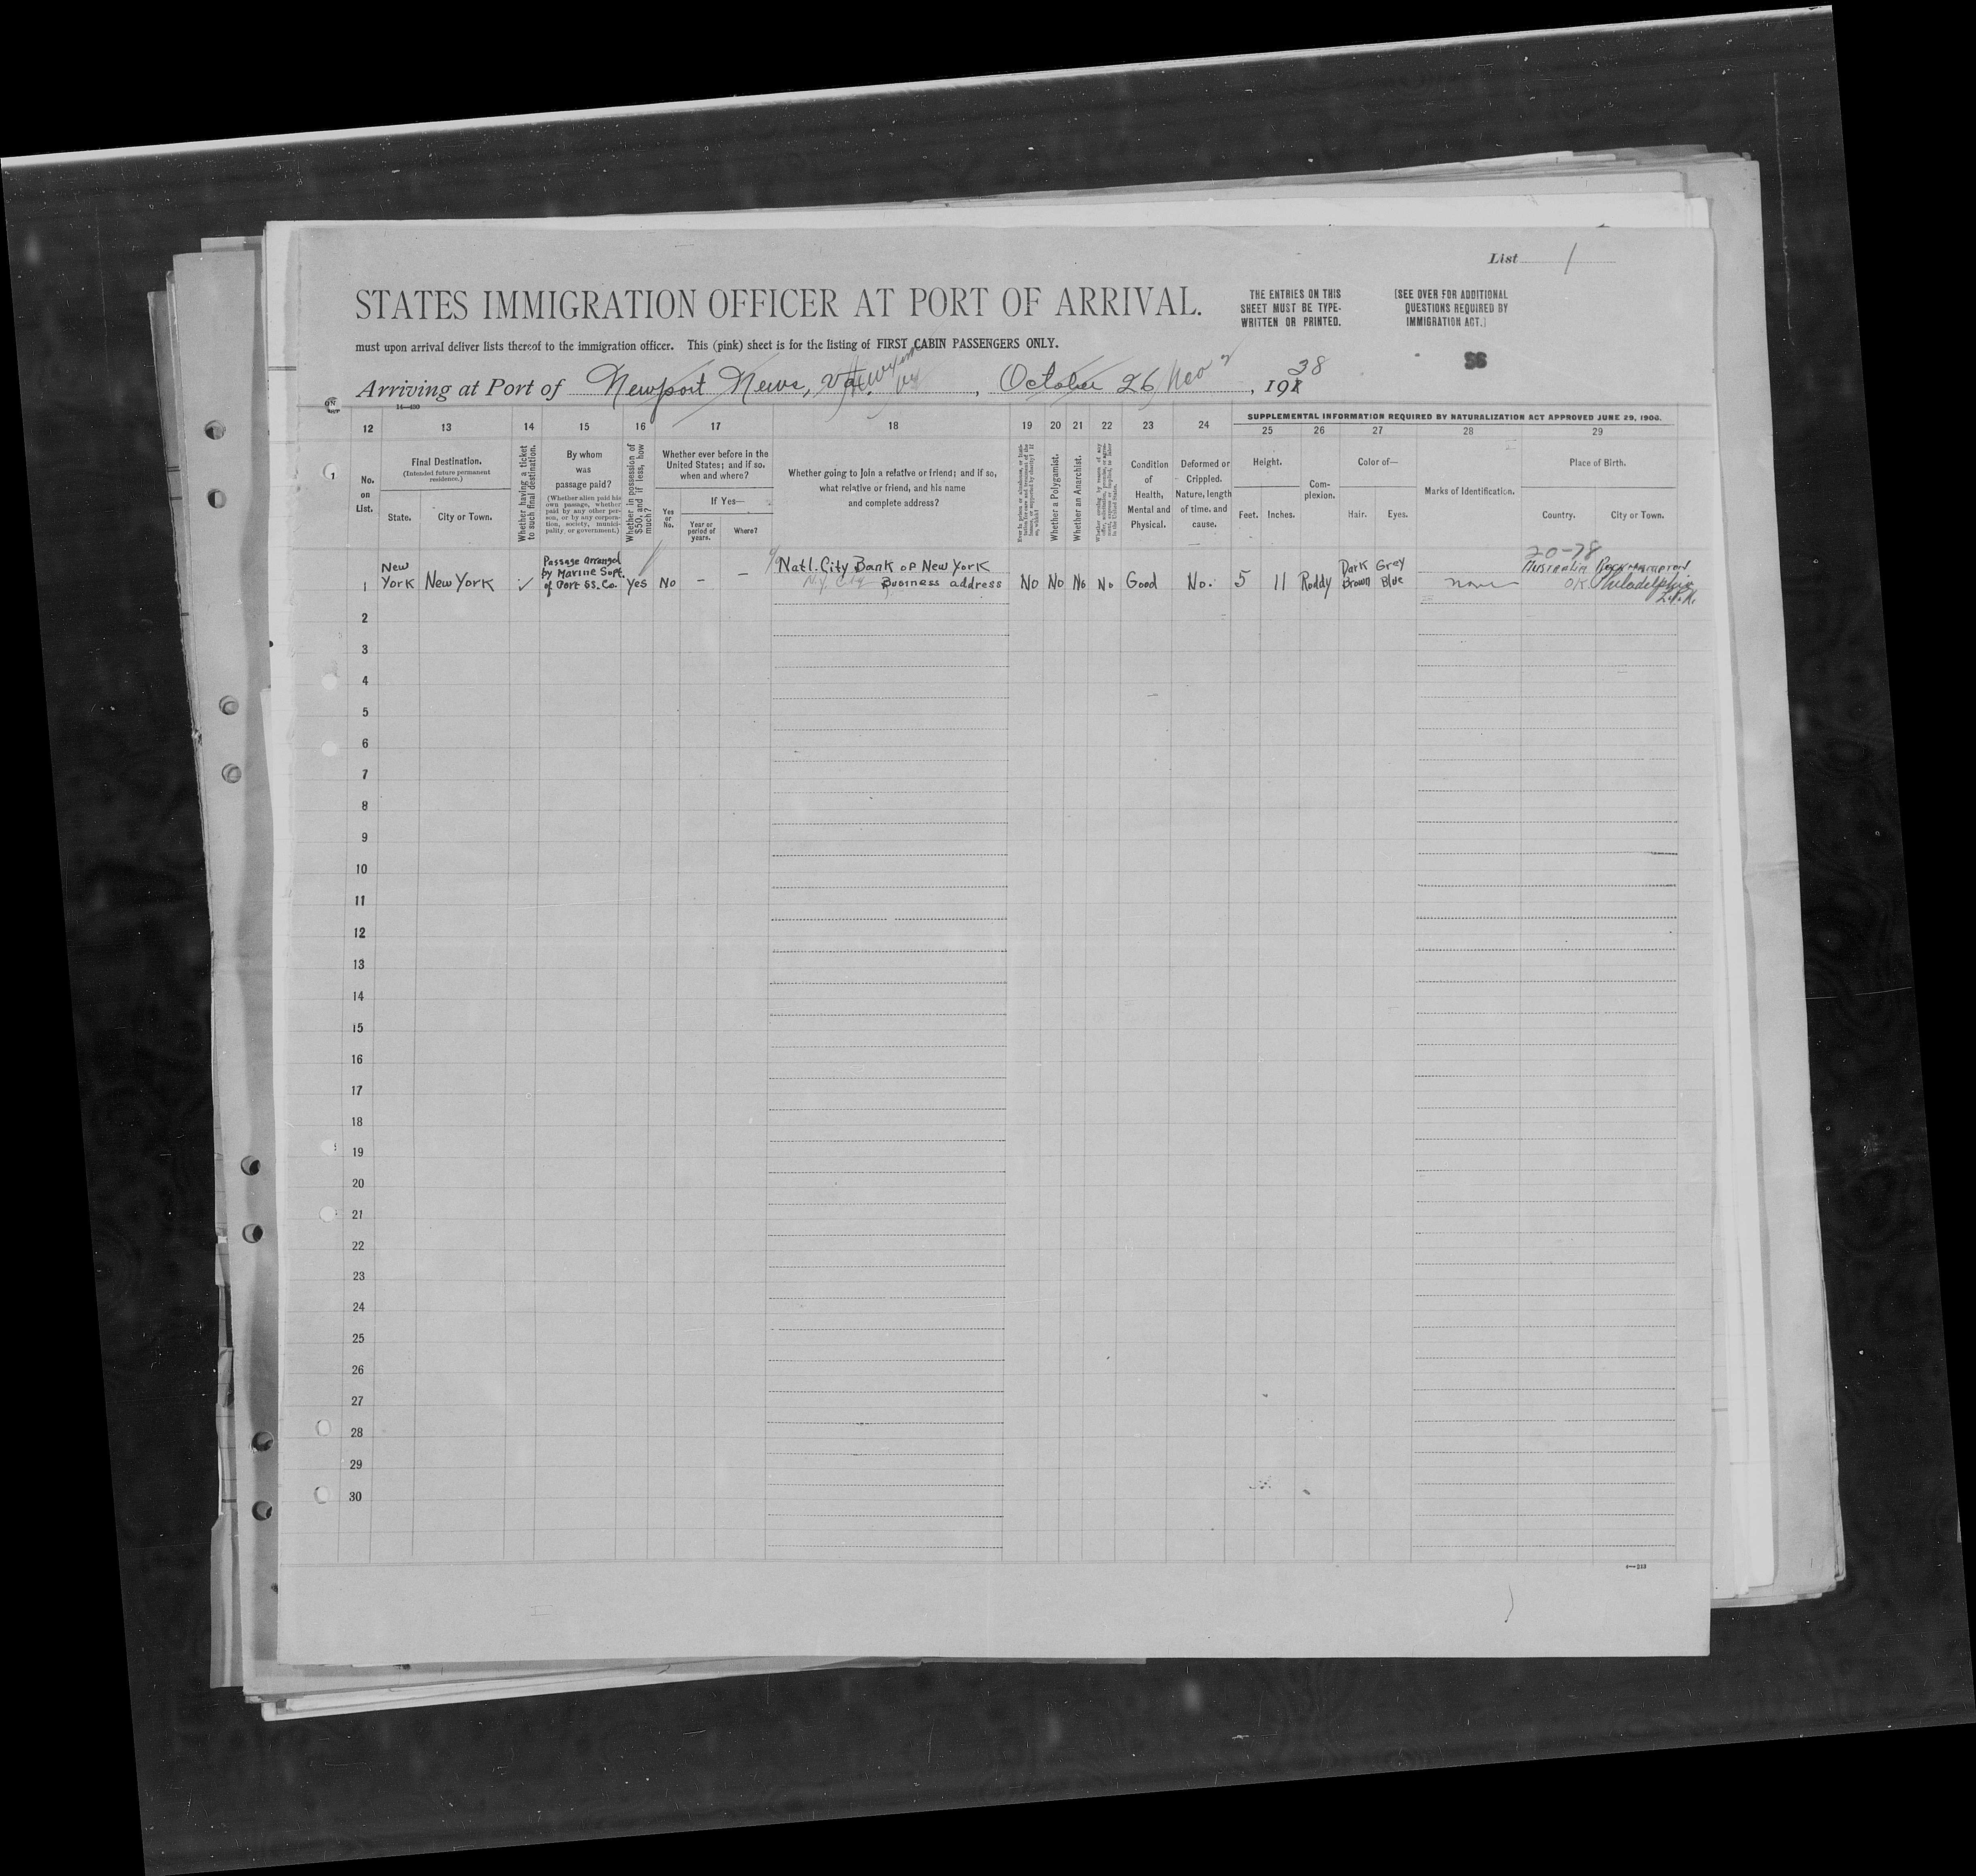 List 1
STATES IMMIGRATION OFFICER AT PORT OF ARRIVAL.
THE ENTRIES ON THIS
SHEET MUST BE TYPE-
WRITTEN OR PRINTED.
[SEE OVER FOR ADDITIONAL
QUESTIONS REQUIRED BY
IMMIGRATION ACT.]
must upon arrival deliver lists thereof to the immigration officer. This (pink) sheet is for the listing of FIRST CABIN PASSENGERS ONLY.
Arriving at Port of Newport News, Va., October 26 Nov 2, 191 38
SUPPLEMENTAL INFORMATION REQUIRED BY NATURALIZATION ACT APPROVED JUNE 29, 1906.
12 13 14 15 16 17 18 19 20 21 22 23 24 25 26 27 28 29
No. on List.
Final Destination.
(Intended future permanent residence.)
State. City or Town.
Whether having a ticket to such final destination.
By whom was passage paid?
(Whether alien paid his own passage, whether paid by any other person, or by any corporation, society, municipality or government.)
Whether in possession of $50, and if less, how much?
Whether ever before in the United States; and if so, when and where?
Yes or No.
If Yes—
Year or period of years. Where?
Whether going to join a relative or friend; and if so, what relative or friend, and his name and complete address?
Whether a Polygamist.
Whether an Anarchist.
Condition of Health, Mental and Physical.
Deformed or Crippled. Nature, length of time, and cause.
Height.
Feet. Inches.
Com-plexion.
Color of—
Hair. Eyes.
Marks of Identification.
Place of Birth.
Country. City or Town.
20-78
1 New York New York ✓ Passage Arranged by Marine Supt. of Port SS. Co. Yes No – – Natl. City Bank of New York
N.Y. City Business address No No No No Good No. 5 11 Ruddy Dark Brown Grey Blue none Australia Rockhampton
OK Philadelphia
2
3
4
5
6
7
8
9
10
11
12
13
14
15
16
17
18
19
20
21
22
23
24
25
26
27
28
29
30